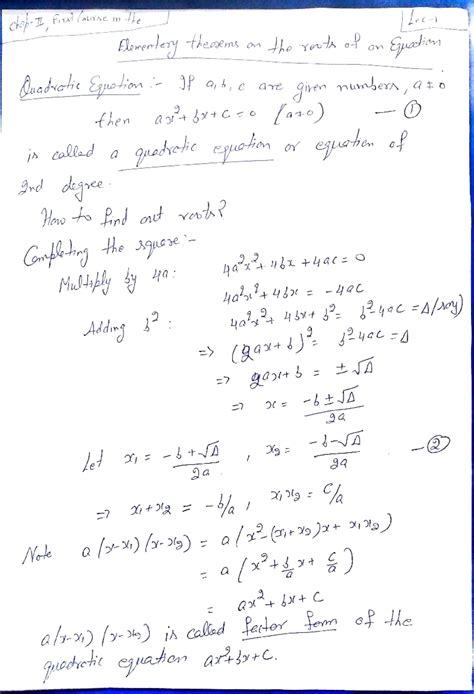 Chap-II, First Course in the
Lec-1
Elementary theorems on the roots of an Equation
Quadratic Equation :- If a, b, c are given numbers, a≠0
then ax²+bx+c=0 (a≠0) —①
is called a quadratic equation or equation of
2nd degree.
How to find out roots?
Completing the square :-
Multiply by 4a: 4a²x²+4bx+4ac=0
4a²x²+4bx = -4ac
Adding b²: 4a²x²+4bx+b² = b²-4ac = Δ(say)
=> (2ax+b)² = b²-4ac = Δ
=> 2ax+b = ±√Δ
=> x = -b±√Δ / 2a
Let x₁ = -b+√Δ / 2a , x₂ = -b-√Δ / 2a —②
=> x₁+x₂ = -b/a , x₁x₂ = c/a
Note a(x-x₁)(x-x₂) = a(x²-(x₁+x₂)x+x₁x₂)
= a(x²+b/a x+c/a)
= ax²+bx+c
a(x-x₁)(x-x₂) is called factor form of the
quadratic equation ax²+bx+c.